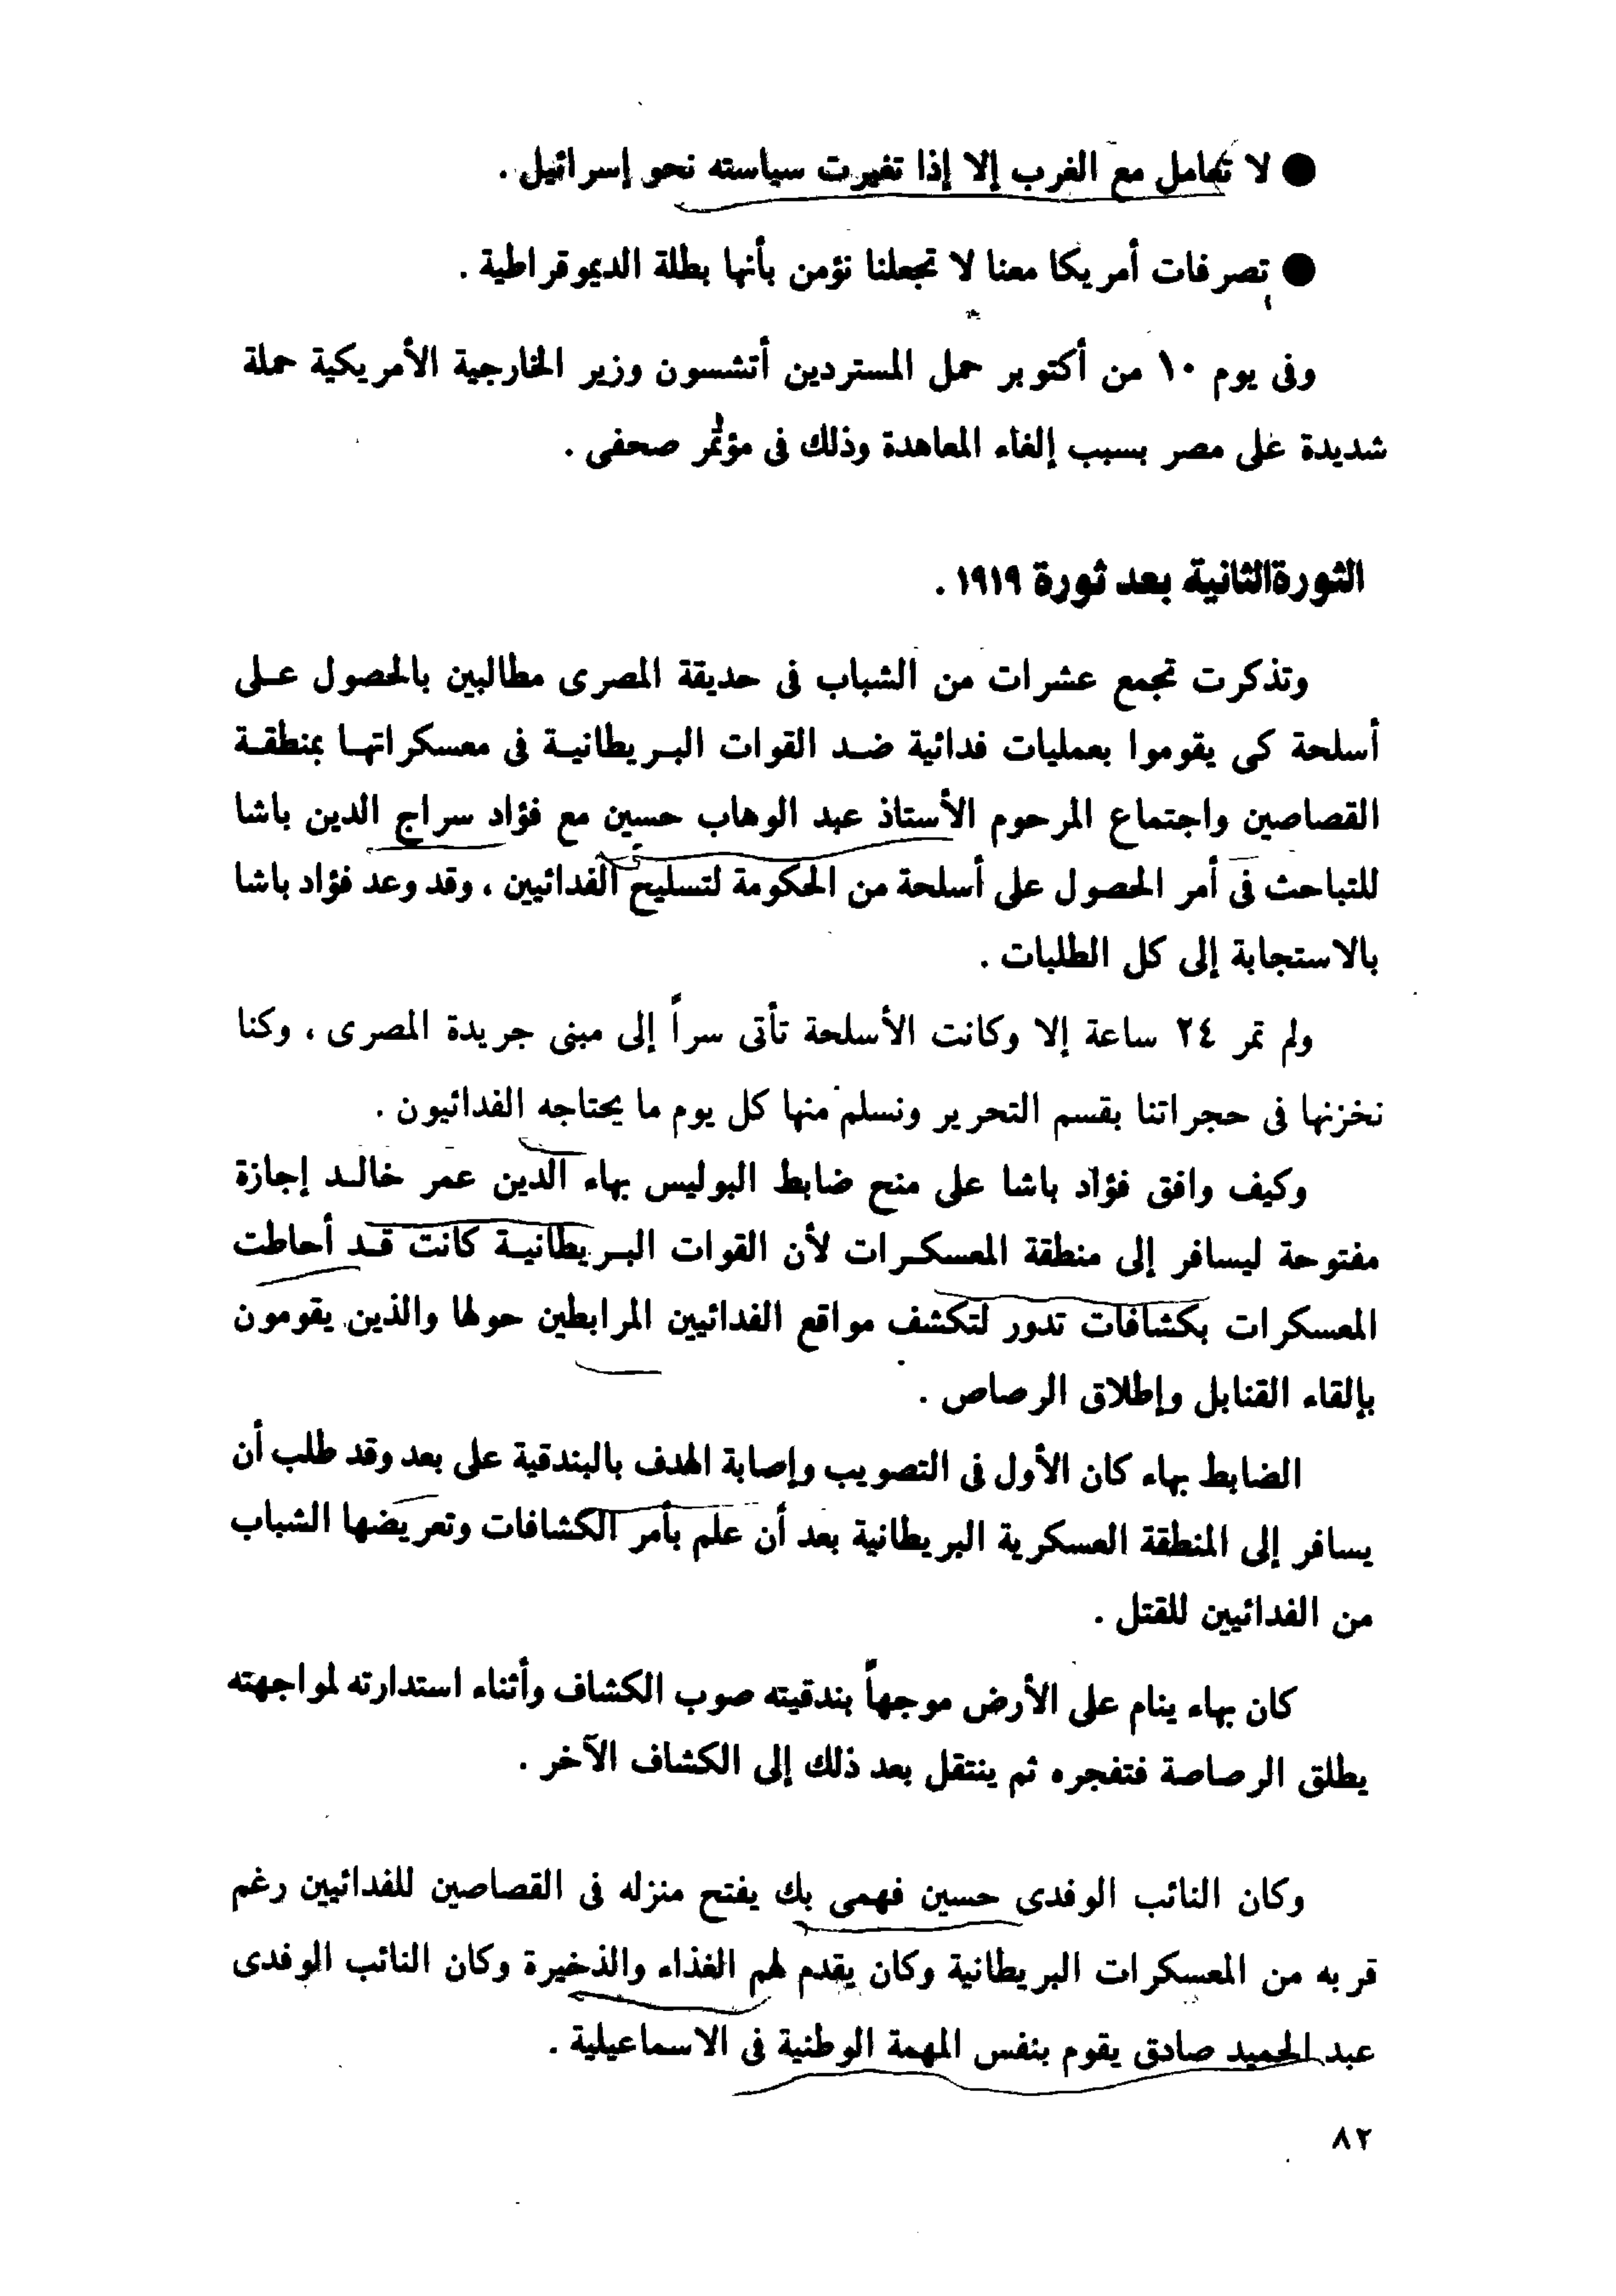 ● لا تعامل مع الغرب إلا إذا تغيرت سياسته نحو إسرائيل .
● تصرفات أمريكا معنا لا تجعلنا نؤمن بأنها بطلة الديموقراطية .
وفى يوم ١٠ من أكتوبر حمل المستردين أتشسون وزير الخارجية الأمريكية حملة
شديدة على مصر بسبب إلغاء المعاهدة وذلك فى مؤتمر صحفى .
الثورةالثانية بعد ثورة ١٩١٩ .
وتذكرت تجمع عشرات من الشباب فى حديقة المصرى مطالبين بالحصول على
أسلحة كى يقوموا بعمليات فدائية ضد القوات البريطانية فى معسكراتها بمنطقة
القصاصين واجتماع المرحوم الأستاذ عبد الوهاب حسين مع فؤاد سراج الدين باشا
للتباحث فى أمر الحصول على أسلحة من الحكومة لتسليح الفدائيين ، وقد وعد فؤاد باشا
بالاستجابة إلى كل الطلبات .
ولم تمر ٢٤ ساعة إلا وكانت الأسلحة تأتى سراً إلى مبنى جريدة المصرى ، وكنا
نخزنها فى حجراتنا بقسم التحرير ونسلم منها كل يوم ما يحتاجه الفدائيون .
وكيف وافق فؤاد باشا على منح ضابط البوليس بهاء الدين عمر خالد إجازة
مفتوحة ليسافر إلى منطقة المعسكرات لأن القوات البريطانية كانت قد أحاطت
المعسكرات بكشافات تدور لتكشف مواقع الفدائيين المرابطين حولها والذين يقومون
بإلقاء القنابل وإطلاق الرصاص .
الضابط بهاء كان الأول فى التصويب وإصابة الهدف بالبندقية على بعد وقد طلب أن
يسافر إلى المنطقة العسكرية البريطانية بعد أن علم بأمر الكشافات وتعريضها الشباب
من الفدائيين للقتل .
كان بهاء ينام على الأرض موجهاً بندقيته صوب الكشاف وأثناء استدارته لمواجهته
يطلق الرصاصة فتفجره ثم ينتقل بعد ذلك إلى الكشاف الآخر .
وكان النائب الوفدى حسين فهمى بك يفتح منزله فى القصاصين للفدائيين رغم
قربه من المعسكرات البريطانية وكان يقدم لهم الغذاء والذخيرة وكان النائب الوفدى
عبد الحميد صادق يقوم بنفس المهمة الوطنية فى الاسماعيلية .
٨٢